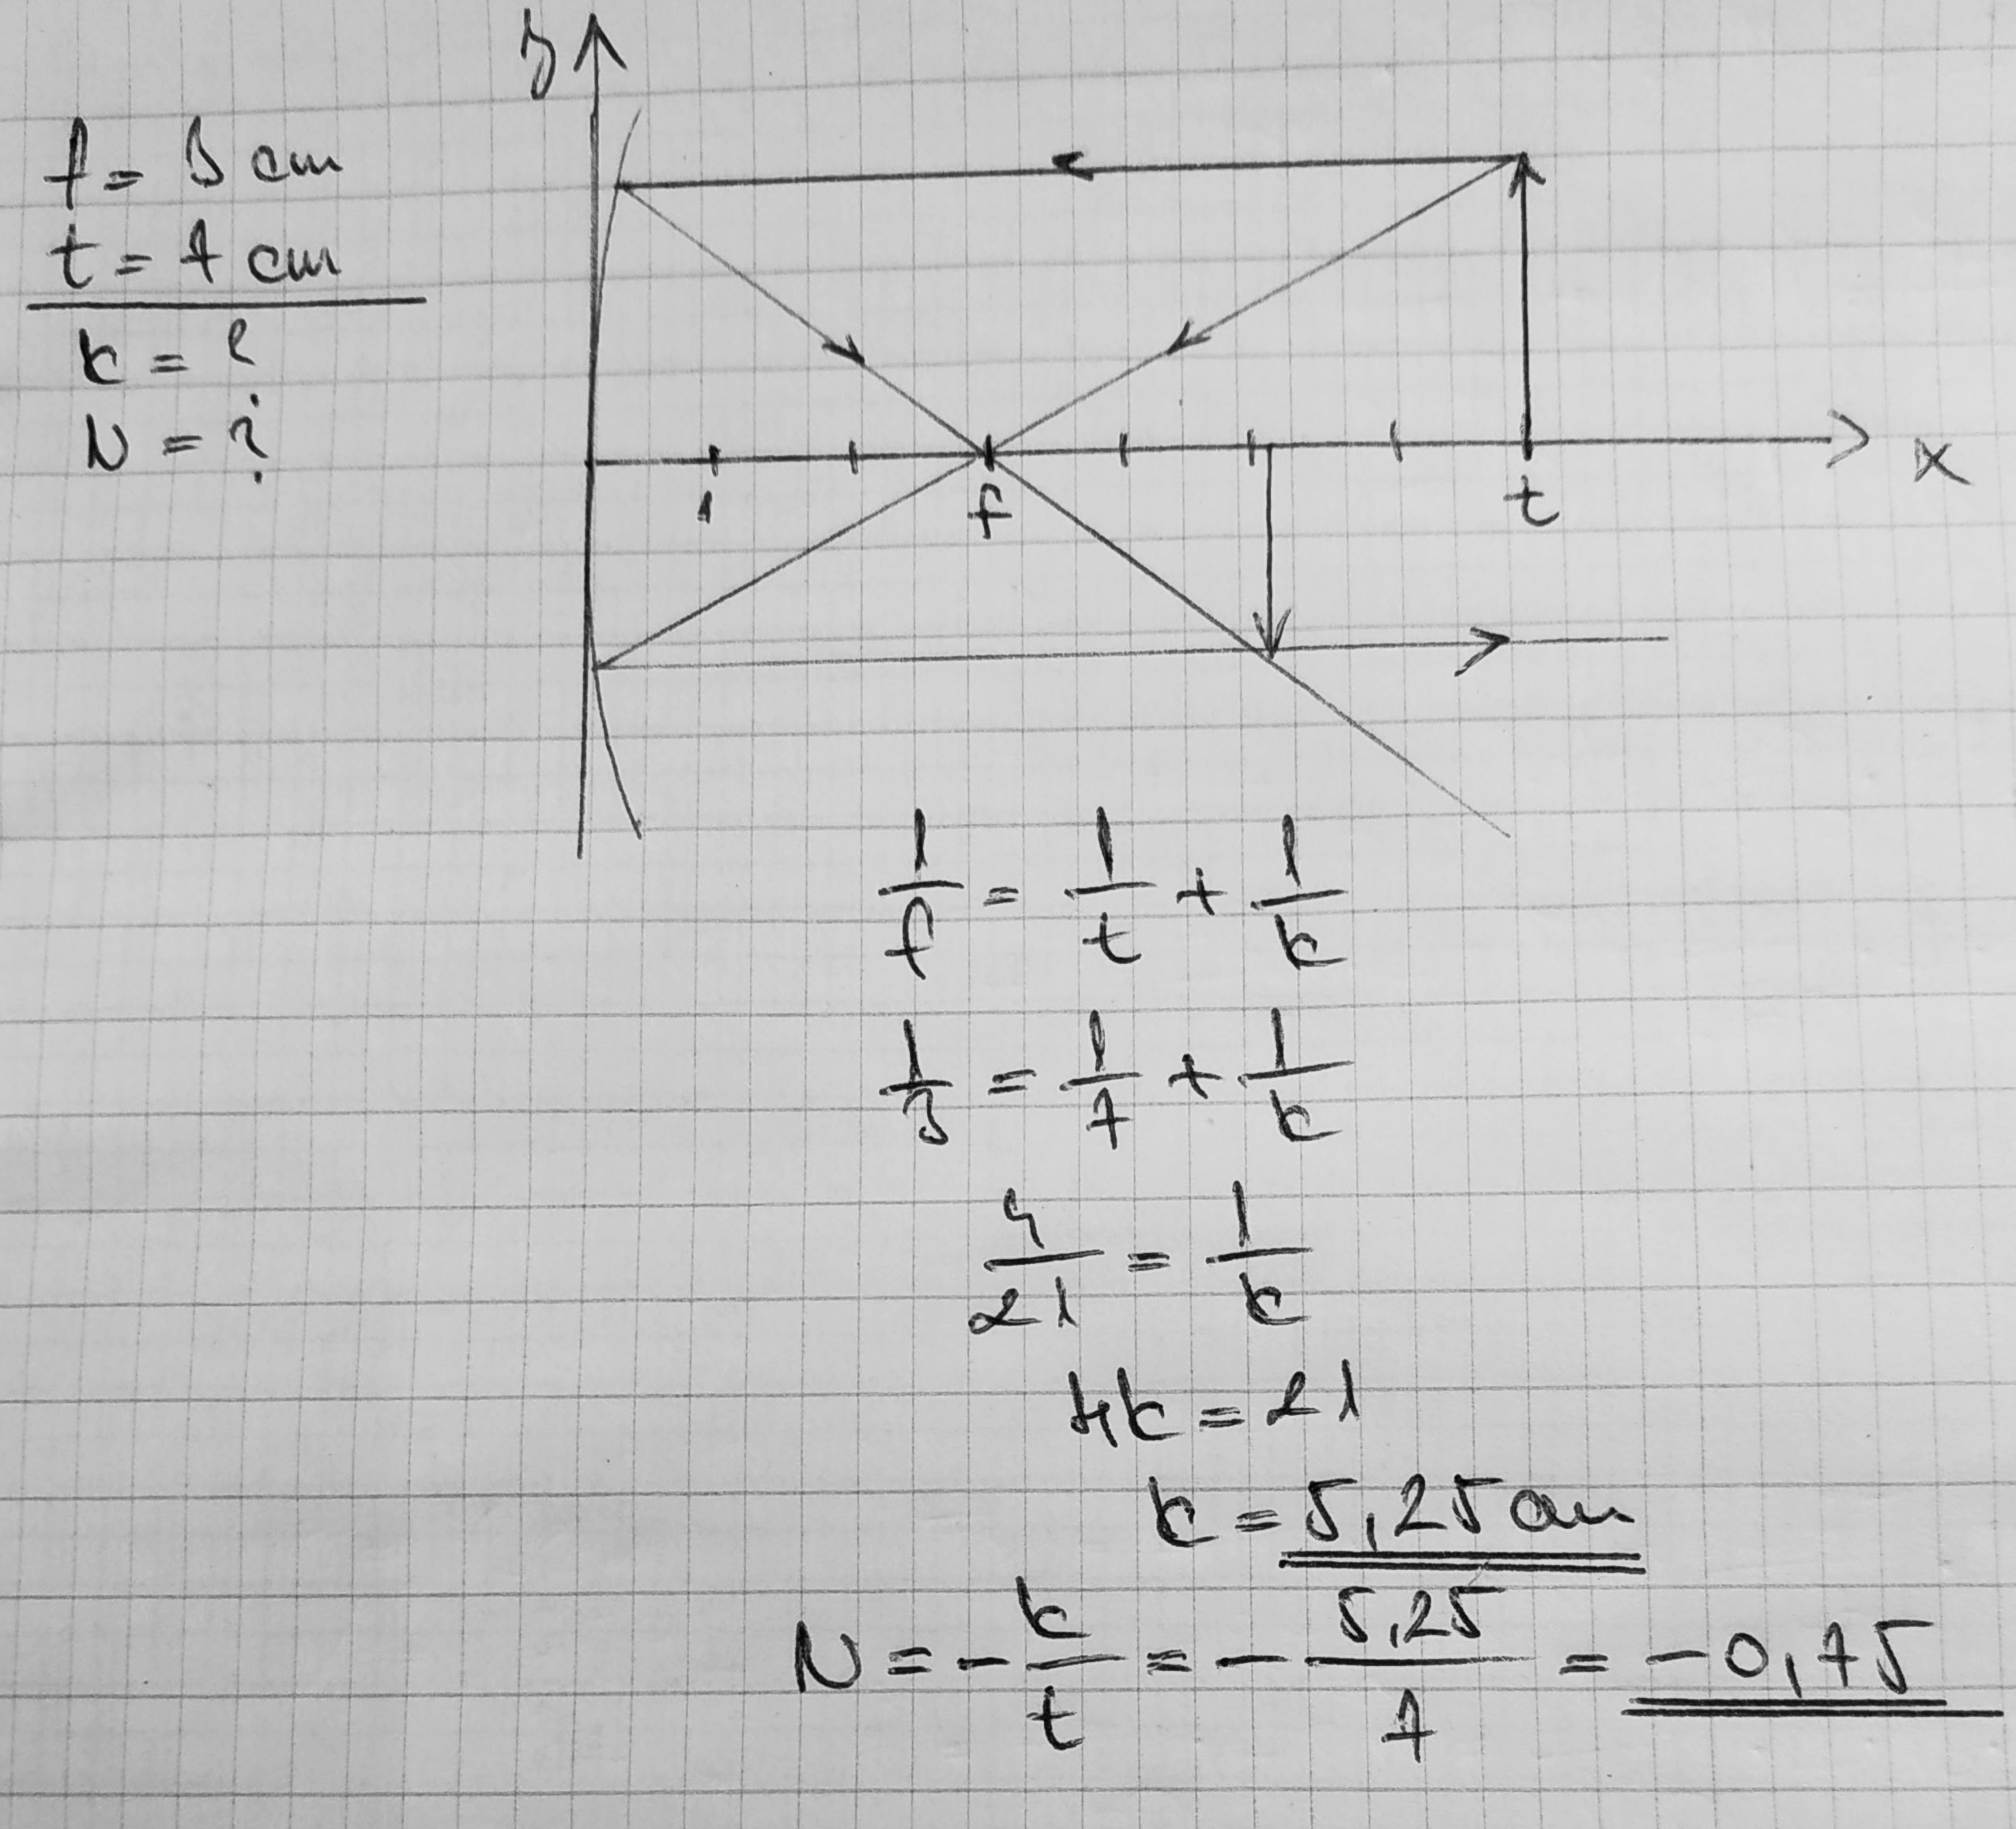 y
f = 3 cm
t = 7 cm
k = ?
N = ?
1 f t x
1/f = 1/t + 1/k
1/3 = 1/7 + 1/k
4/21 = 1/k
4k = 21
k = 5,25 cm
N = - k/t = - 5,25/7 = -0,75